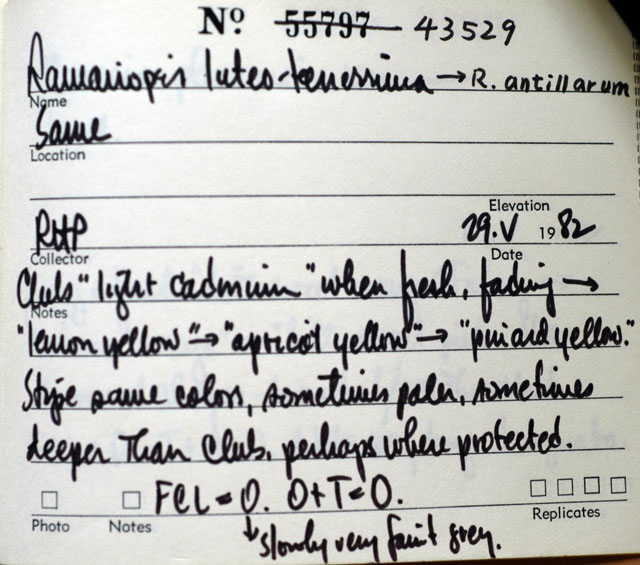 Nº 55797 43529
Ramariopsis luteo-tenerrima → R. antillarum
Name
Same
Location
Elevation
RHP 29.V 1982
Collector Date
Clubs "light cadmium" when fresh, fading →
Notes
"lemon yellow" → "apricot yellow" → "pinard yellow."
Stipe same color, sometimes paler, sometimes
deeper than club, perhaps where protected.
FCL = 0. O+T = 0.
Photo Notes Replicates
↓ slowly very faint grey.